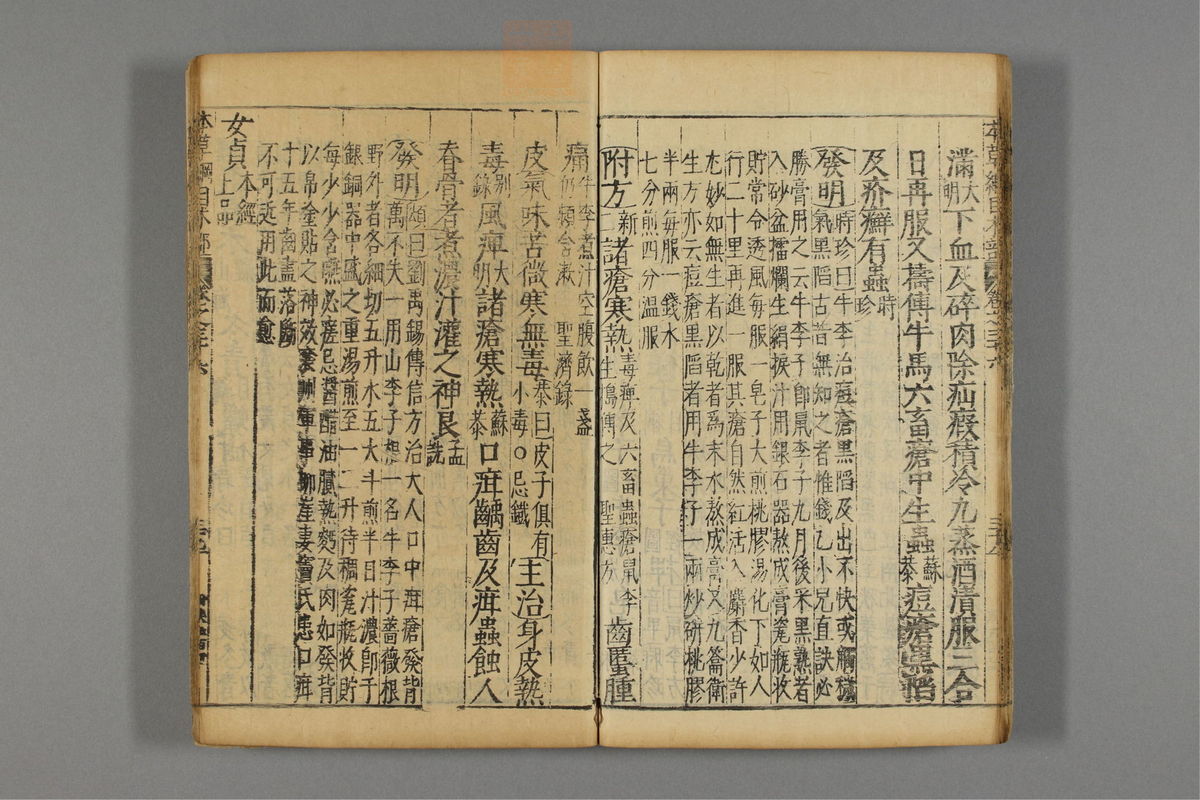 本草綱目木部
滿大明下血及碎肉除疝瘕積冷九蒸酒漬服三合
日再服又擣傅牛馬六畜瘡中生蟲蘇恭痘瘡黑陷
及疥癬有蟲時珍
發明時珍曰牛李治痘瘡黑陷及出不快或觸穢
氣黑陷古昔無知之者惟錢乙小兒直訣必
勝膏用之云牛李子卽鼠李子九月後采黑熟者
入砂盆擂爛生絹捩汁用銀石器熬成膏瓷瓶收
貯常令透風每服一皂子大煎桃膠湯化下如人
行二十里再進一服其瘡自然紅活入麝香少許
尤妙如無生者以乾者爲末水熬成膏又九籥衛
生方亦云痘瘡黑陷者用牛李子一兩炒研桃膠
半兩每服一錢水
七分煎四分温服
附方新二諸瘡寒熱毒痺及六畜蟲瘡鼠李生擣傅之 聖惠方 齒䘌腫
痛牛李煮汁空腹飲一盞仍頻含漱 聖濟錄
皮氣味苦微寒無毒恭曰皮子俱有小毒○忌鐵主治身皮熱
毒別錄風痺大明諸瘡寒熱蘇恭口疳齲齒及疳蟲蝕人
脊骨者煮濃汁灌之神良孟詵
發明頌曰劉禹錫傳信方治大人口中疳瘡發背
萬不失一用山李子根一名牛李子薔薇根
野外者各細切五升水五大斗煎半日汁濃卽于
銀銅器中盛之重湯煎至一二升待稠瓷瓶收貯
每少少含嚥必瘥忌醬醋油膩熱麪及肉如發背
以帛塗貼之神效襄州軍事柳岸妻竇氏患口疳
十五年齒盡落斷
不可近用此而愈
女貞本經上品
本草綱目木部